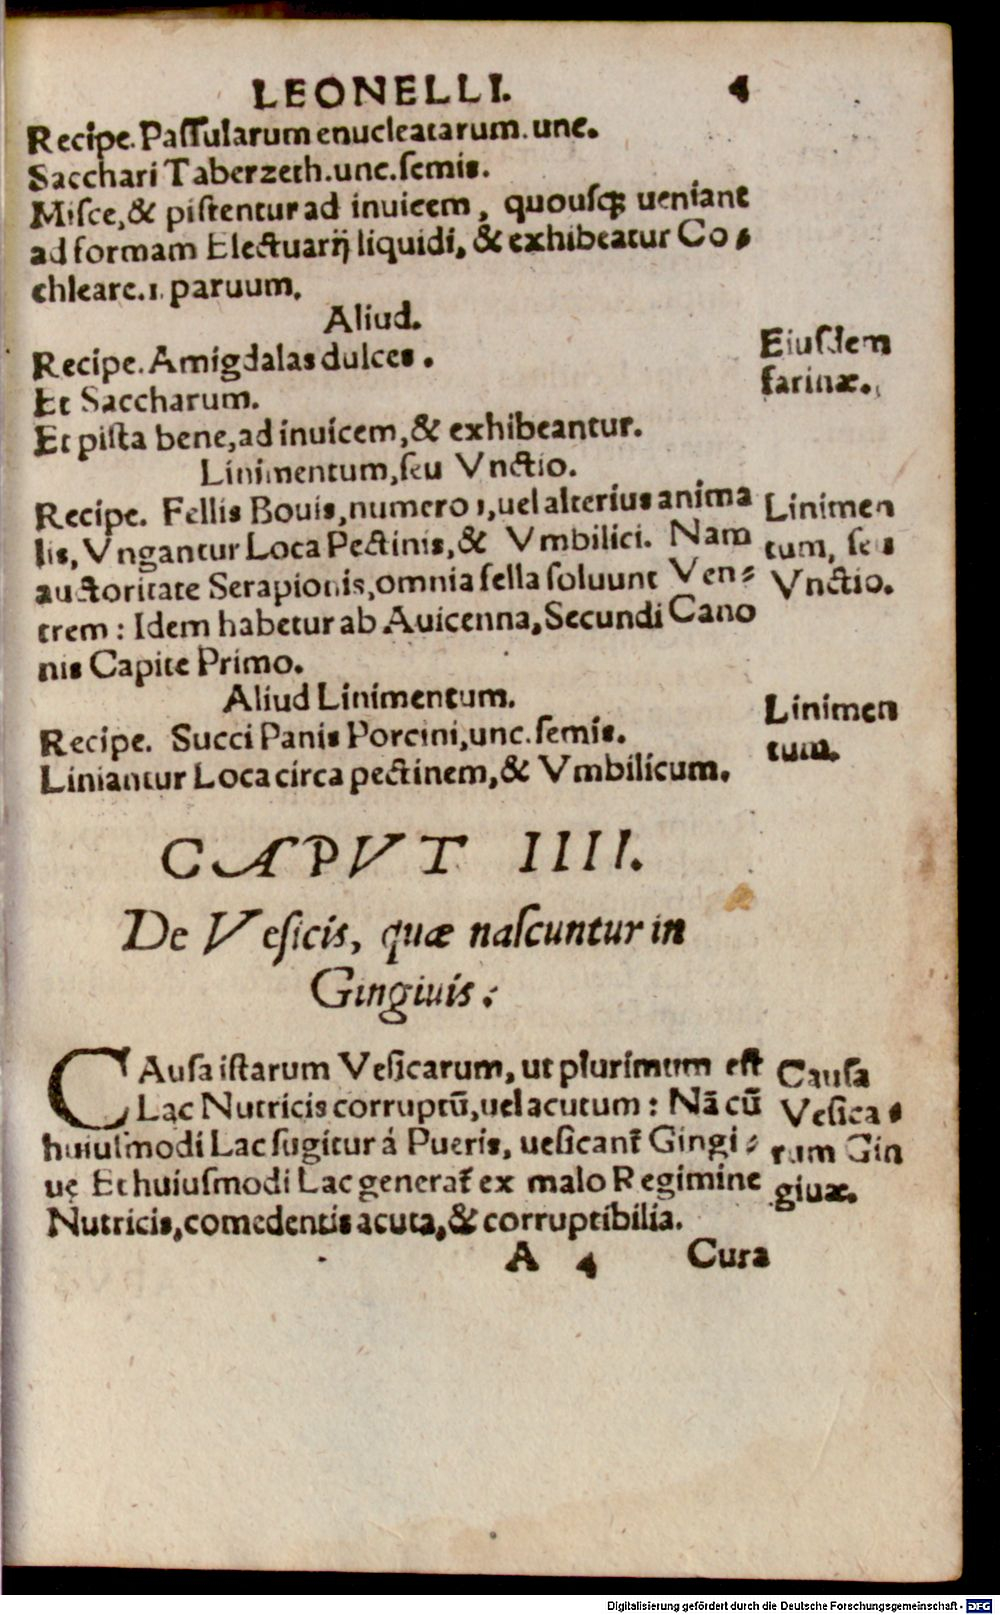 LEONELLI. 4
Recipe. Paſſularum enucleatarum. unc.
Sacchari Taberzeth. unc. ſemis.
Miſce, & piſtentur ad inuicem, quouſq; ueniant
ad formam Electuarij liquidi, & exhibeatur Co⸗
chleare. 1. paruum.
Aliud.
Recipe. Amigdalas dulces.
Et Saccharum.
Et piſta bene, ad inuicem, & exhibeantur.
Eiuſdem
farinæ.
Linimentum, ſeu Vnctio.
Recipe. Fellis Bouis, numero 1, uel alterius anima
lis, Vngantur Loca Pectinis, & Vmbilici. Nam
auctoritate Serapionis, omnia fella ſoluunt Ven⸗
trem: Idem habetur ab Auicenna, Secundi Cano
nis Capite Primo.
Linimen
tum, ſeu
Vnctio.
Aliud Linimentum.
Recipe. Succi Panis Porcini, unc. ſemis.
Liniantur Loca circa pectinem, & Vmbilicum.
Linimen
tum.
CAPVT IIII.
De Veſicis, quæ naſcuntur in
Gingiuis:
CAuſa iſtarum Veſicarum, ut plurimum eſt
Lac Nutricis corruptū, uel acutum: Nā cū
huiuſmodi Lac ſugitur á Pueris, ueſicant᷑ Gingi⸗
uę Et huiuſmodi Lac generat᷑ ex malo Regimine
Nutricis, comedentis acuta, & corruptibilia.
Cauſa
Veſica⸗
rum Gin
giuæ.
A 4 Cura
Digitalisierung gefördert durch die Deutsche Forschungsgemeinschaft - DFG